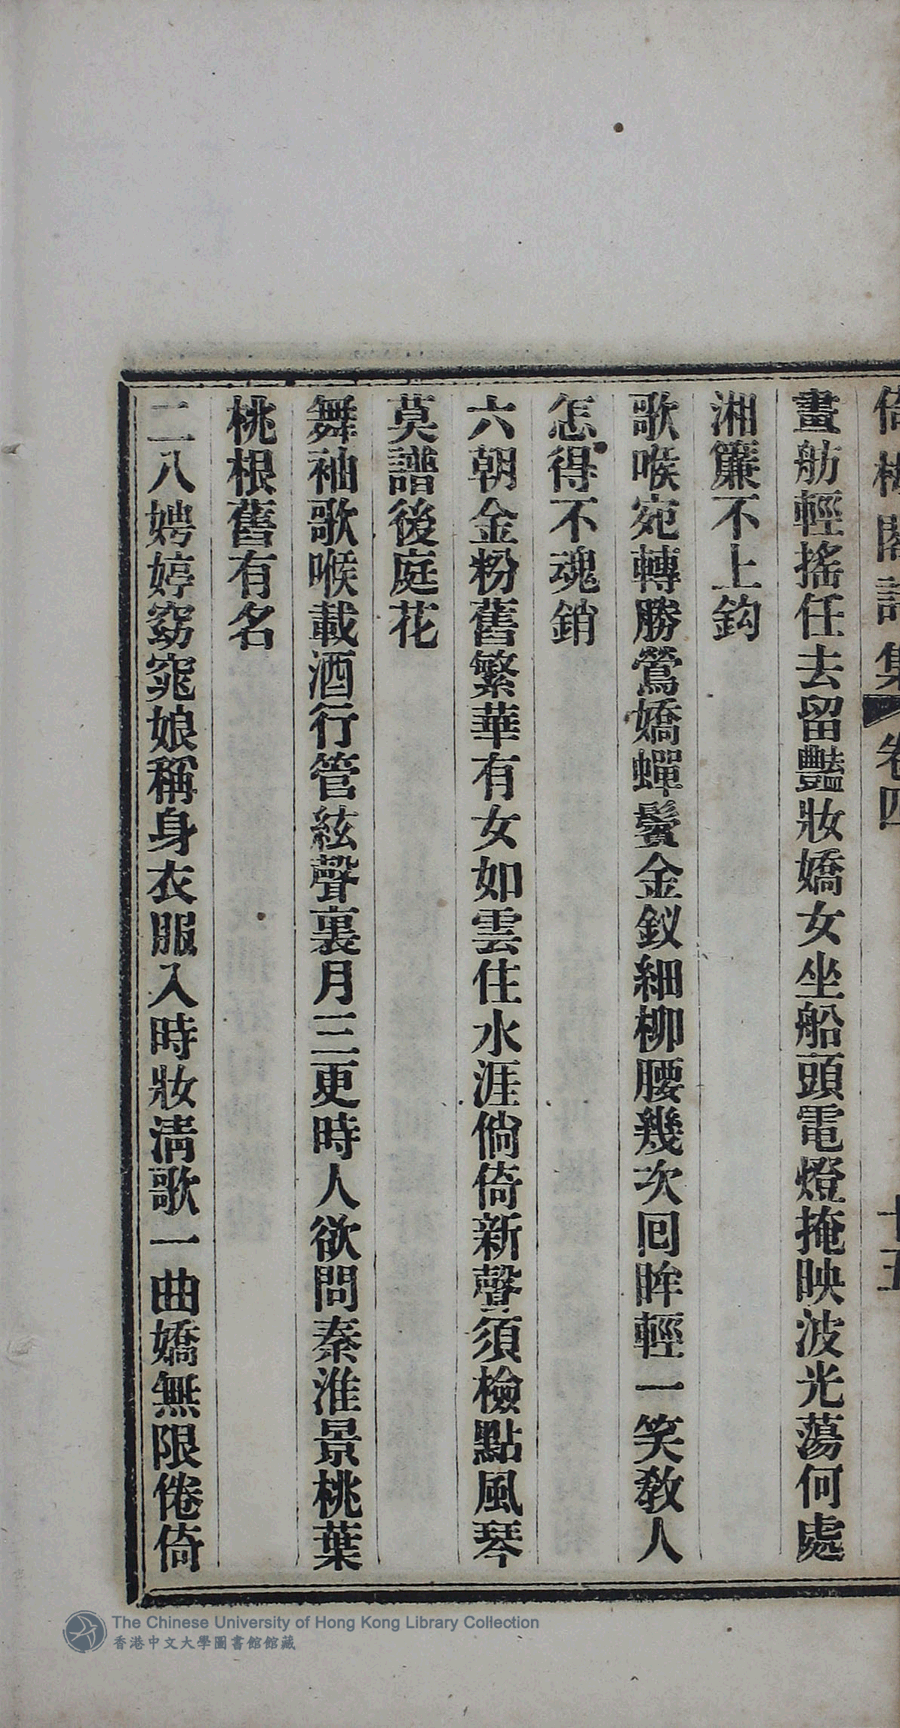 倚梅閣詩集 卷四 十五
畫舫輕搖任去留豔妝嬌女坐船頭電燈掩映波光蕩何處
湘簾不上鈎
歌喉宛轉勝鶯嬌蟬鬢金釵細柳腰幾次囘眸輕一笑敎人
怎得不魂銷
六朝金粉舊繁華有女如雲住水涯倘倚新聲須檢點風琴
莫譜後庭花
舞袖歌喉載酒行管絃聲裏月三更時人欲問秦淮景桃葉
桃根舊有名
二八娉婷窈窕娘稱身衣服入時妝淸歌一曲嬌無限倦倚
The Chinese University of Hong Kong Library Collection
香港中文大學圖書館館藏